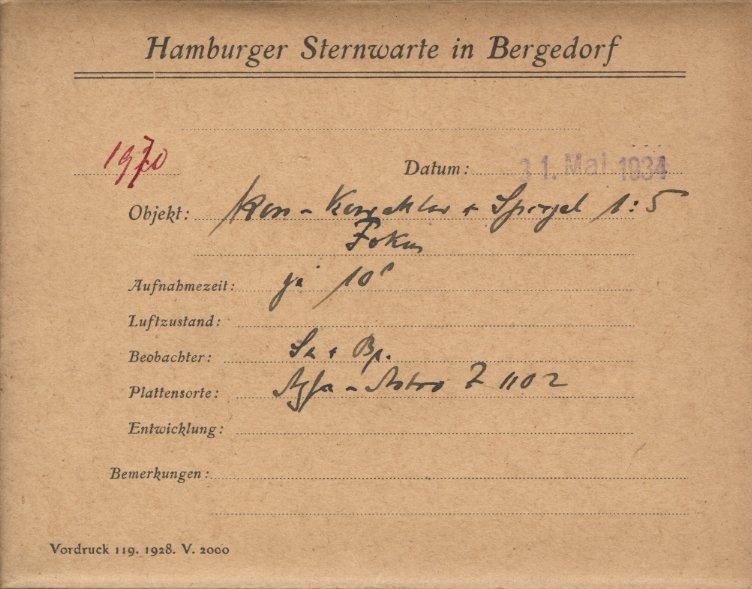 Hamburger Sternwarte in Bergedorf
1970
Datum: 31. Mai 1934
Objekt: Korrektor + Spiegel 1:5
Fokus
Aufnahmezeit: je 10ˢ
Luftzustand:
Beobachter:
Plattensorte: Agfa-Astro Z 1102
Entwicklung:
Bemerkungen:
Vordruck 119. 1928. V. 2000